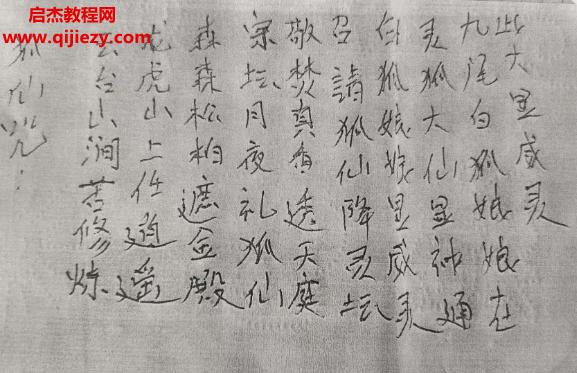 启杰教程网
www.qijiezy.com
狐仙咒：
云台山涧苦修炼
龙虎山上任逍遥
森森松柏遮金殿
宗坛月夜礼狐仙
敬焚真香透天庭
召請狐仙降灵坛
白狐娘娘显威灵
灵狐大仙显神通
九尾白狐娘娘在
此大显威灵